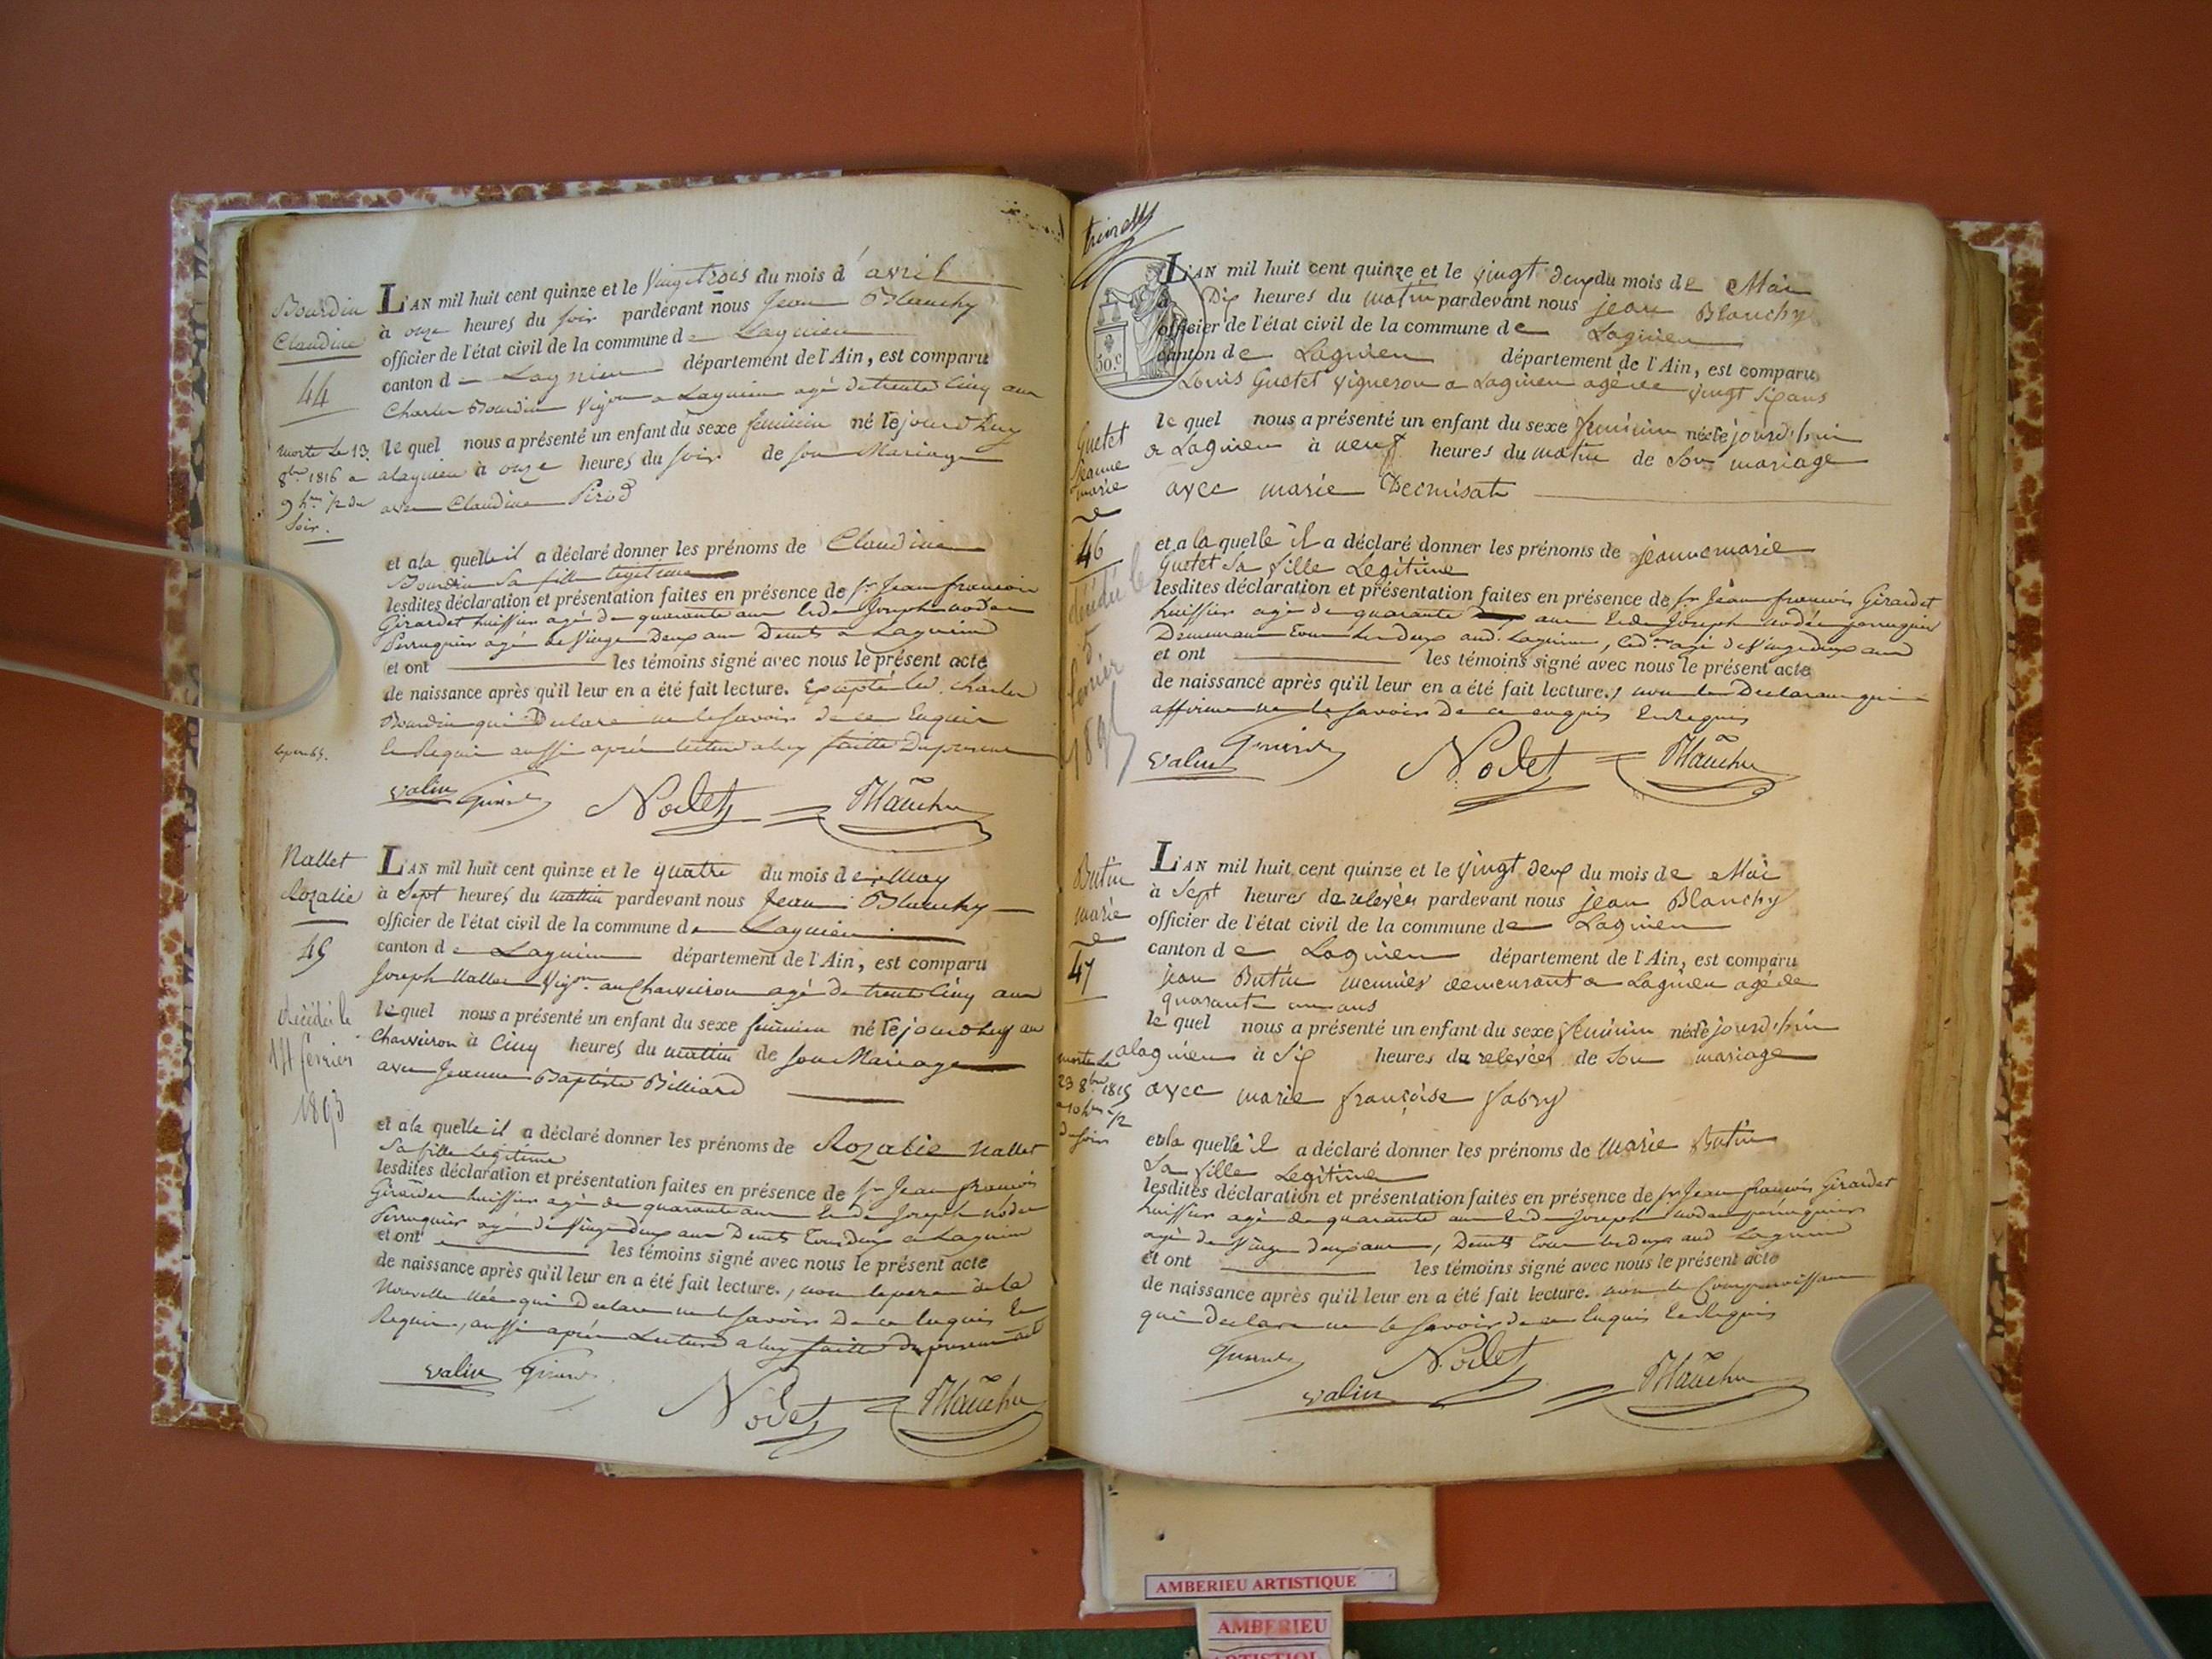 Bourdin
Claudine
44
morte le 13
8bre 1816 a
9 h. 1/2 du
soir.
L'AN mil huit cent quinze et le vingt trois du mois d'avril
à onze heures du soir pardevant nous Jean Blanchy
officier de l'état civil de la commune de Lagnieu
canton de Lagnieu département de l'Ain, est comparu
Charles Bourdin vign a Lagnieu agé de trente cinq ans
le quel nous a présenté un enfant du sexe feminin né le jourdhuy
a lagnieu à onze heures du soir de son Mariage
avec Claudine Pirod
et a la quelle il a déclaré donner les prénoms de Claudine
Bourdin sa fille legitime
lesdites déclaration et présentation faites en présence de sr Jean françois
Girardet huissier agé de quarante ans et de Joseph nodet
Perruquier agé de vingt Deux ans Demts a Lagnieu
et ont les témoins signé avec nous le présent acte
de naissance après qu'il leur en a été fait lecture. Excepté led. Charles
Bourdin qui a Declaré ne le savoir de ce Enquis
et Requis aussi après lecture a luy faitte Du present
valin Girard Nodet Blanchy
Nallet
Rozalie
45
décédée le
14 fevrier
1893
L'AN mil huit cent quinze et le quatre du mois de May
à Sept heures du mattin pardevant nous Jean Blanchy
officier de l'état civil de la commune de Lagnieu
canton de Lagnieu département de l'Ain, est comparu
Joseph Nallet Vign. au Charveiron agé de trente cinq ans
le quel nous a présenté un enfant du sexe féminin né le jourdhuy au
Charveiron à cinq heures du mattin de son Mariage
avec Jeanne Baptiste Billiard
et a la quelle il a déclaré donner les prénoms de Rozalie Nallet
Sa fille Légitime
lesdites déclaration et présentation faites en présence de sr Jean françois
Girardet huissier agé de quarante ans et de Joseph nodet
Perruquier agé de vingt deux ans Demts Tous deux a Lagnieu
et ont les témoins signé avec nous le présent acte
de naissance après qu'il leur en a été fait lecture, non le pere de la
Nouvelle Née qui a Declaré ne le savoir De ce Enquis et
Requis, aussi après Lecture a luy faitte du present act
valin Girard
Nodet Blanchy
L'AN mil huit cent quinze et le vingt deux du mois de Mai
à Dix heures du matin pardevant nous jean Blanchy
officier de l'état civil de la commune de Lagnieu
50.c
canton de Lagnieu département de l'Ain, est comparu
Louis Guetet vigneron a Lagnieu agé de vingt six ans
Guetet
Jeanne
marie
46
décédée le
5
fevrier
le quel nous a présenté un enfant du sexe féminin né le jourd'hui
a Lagnieu à neuf heures du matin de son mariage
avec marie
et a la quelle il a déclaré donner les prénoms de jeanne marie
Guetet sa fille Légitime
lesdites déclaration et présentation faites en présence de sr Jean françois Girardet
huissier agé de quarante ans et de Joseph nodet perruquier
Demeurant tous les deux aud. Lagnieu, led. agé de vingt deux ans
et ont les témoins signé avec nous le présent acte
de naissance après qu'il leur en a été fait lecture, non le Declarant qui
affirme ne le savoir De ce enquis et Requis
valin Girard Nodet Blanchy
Butin
marie
47
morte le
23 8bre 1815
a 10 h. 1/2
du soir
L'AN mil huit cent quinze et le vingt deux du mois de Mai
à Sept heures de relevée pardevant nous jean Blanchy
officier de l'état civil de la commune de Lagnieu
canton de Lagnieu département de l'Ain, est comparu
jean Butin meunier demeurant a Lagnieu agé de
quarante un ans
le quel nous a présenté un enfant du sexe féminin né le jourd'hui
a lagnieu à Six heures de relevées de son mariage
avec marie françoise fabry
et a la quelle il a déclaré donner les prénoms de marie Butin
Sa fille Legitime
lesdites déclaration et présentation faites en présence de sr Jean françois Girardet
huissier agé de quarante ans et de Joseph nodet perruquier
agé de vingt deux ans, Demts Tous les deux aud Lagnieu
et ont les témoins signé avec nous le présent acte
de naissance après qu'il leur en a été fait lecture. non le Comparoissant
qui a Declaré ne le savoir de ce Enquis et Requis
Girard Nodet
valin Blanchy
AMBERIEU ARTISTIQUE
AMBERIEU